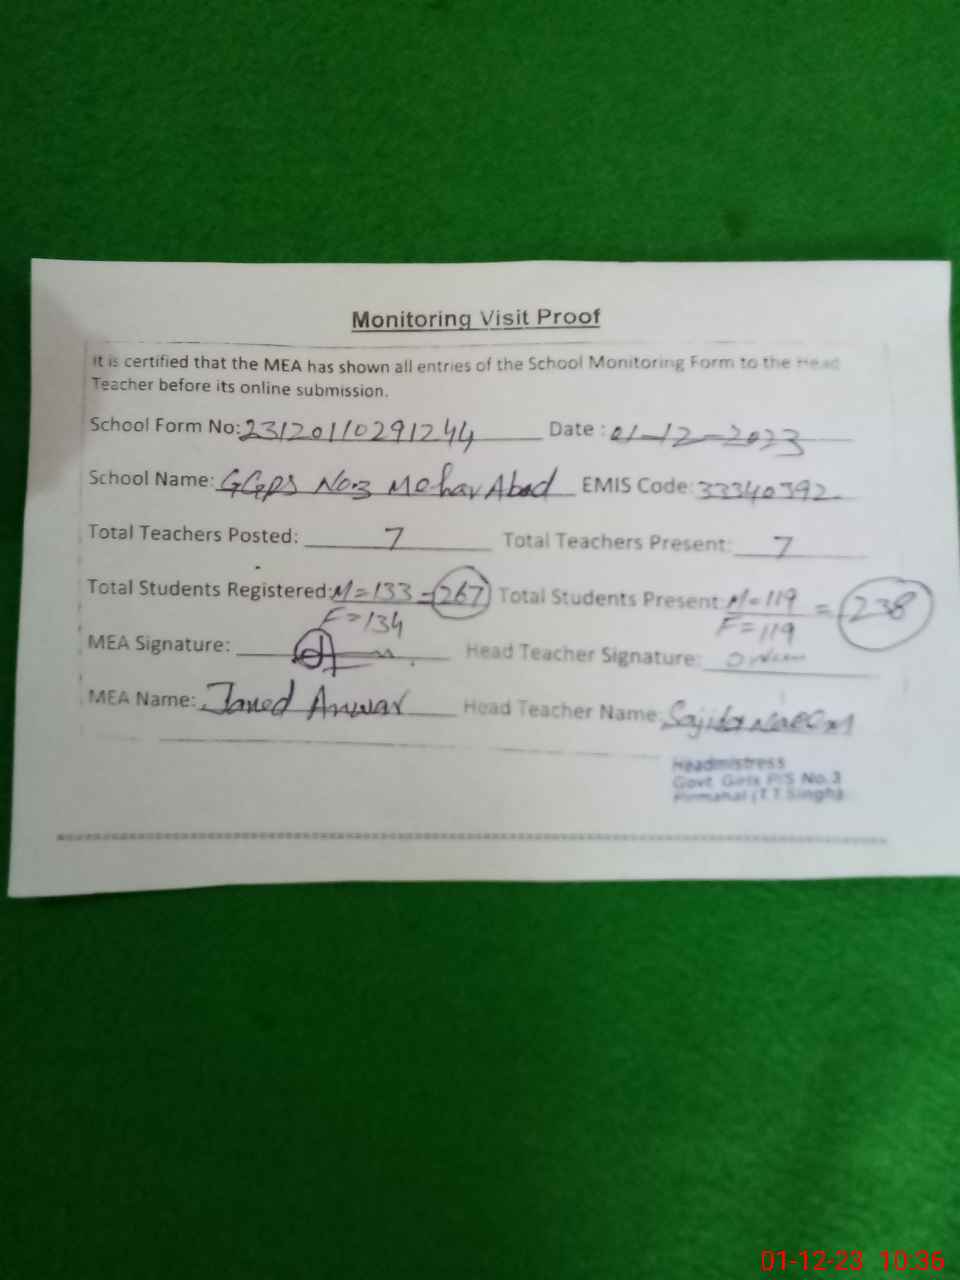 Monitoring Visit Proof
It is certified that the MEA has shown all entries of the School Monitoring Form to the Head
Teacher before its online submission.
School Form No: 23120110291244 Date : 01-12-2023
School Name: GGPS No.3 Mehar Abad EMIS Code: 33340392
Total Teachers Posted: 7 Total Teachers Present: 7
Total Students Registered: M=133 = 267 Total Students Present: M=119 = 238
F=134 F=119
MEA Signature: Head Teacher Signature:
MEA Name: Javed Anwar Head Teacher Name: Sajida Naeem
Headmistress
Govt. Girls P/S No.3
Pirmahal (T.T.Singh)
01-12-23 10:36